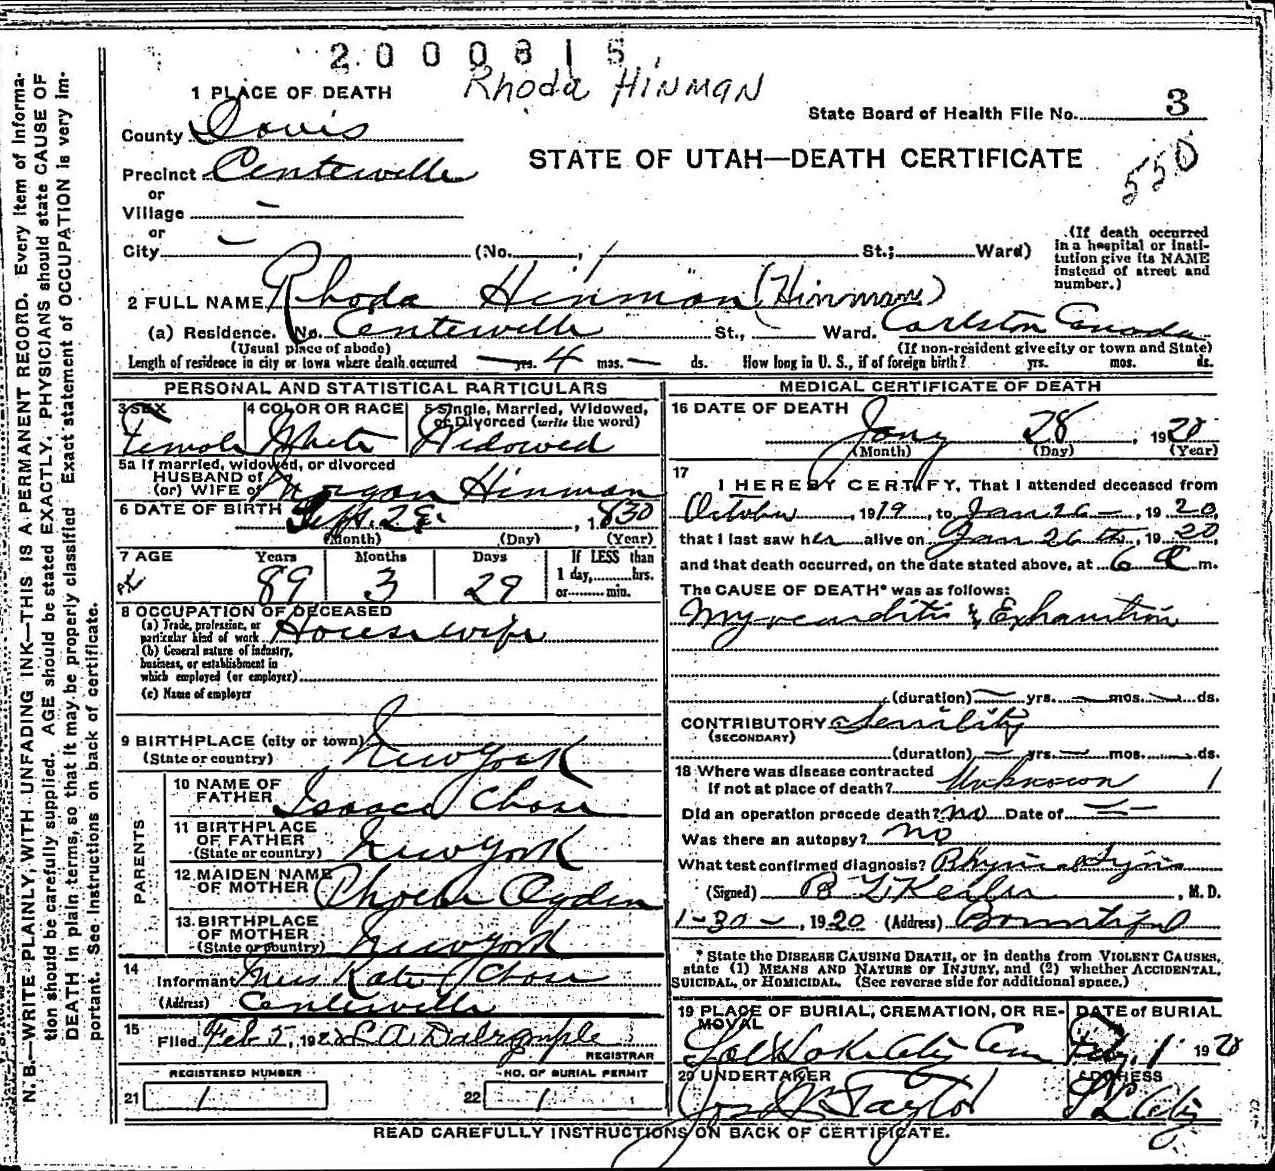 2000815
Rhoda Hinman
1 PLACE OF DEATH
State Board of Health File No. 3
County Davis
STATE OF UTAH—DEATH CERTIFICATE
550
Precinct Centerville
or
Village –
or
City – (No. , / St.; Ward)
(If death occurred in a hospital or institution give its NAME instead of street and number.)
2 FULL NAME Rhoda Hinman (Hinman)
(a) Residence. No. Centerville St., Ward. Carlston Canada
(Usual place of abode) (If non-resident give city or town and State)
Length of residence in city or town where death occurred — yrs. 4 mos. — ds. How long in U. S., if of foreign birth? yrs. mos. ds.
PERSONAL AND STATISTICAL PARTICULARS
3 SEX 4 COLOR OR RACE 5 Single, Married, Widowed, or Divorced (write the word)
Female White Widowed
5a If married, widowed, or divorced
HUSBAND of
(or) WIFE of Morgan Hinman
6 DATE OF BIRTH Sept. 29. , 1830
(Month) (Day) (Year)
7 AGE Years Months Days If LESS than
89 3 29 1 day,......hrs.
or......min.
8 OCCUPATION OF DECEASED
(a) Trade, profession, or
particular kind of work Housewife
(b) General nature of industry,
business, or establishment in
which employed (or employer)
(c) Name of employer
9 BIRTHPLACE (city or town)
(State or country) New York
PARENTS
10 NAME OF
FATHER Isaac Chase
11 BIRTHPLACE
OF FATHER
(State or country) New York
12 MAIDEN NAME
OF MOTHER Phoebe Ogden
13 BIRTHPLACE
OF MOTHER
(State or country) New York
14
Informant Kate Chase
(Address) Centerville
15
Filed Feb 5, 1920 L A Dalrymple
REGISTRAR
REGISTERED NUMBER NO. OF BURIAL PERMIT
21 1 22 1
MEDICAL CERTIFICATE OF DEATH
16 DATE OF DEATH
Jany 28 , 1920
(Month) (Day) (Year)
17
I HEREBY CERTIFY, That I attended deceased from
October , 1919, to Jan 26 – , 1920,
that I last saw her alive on Jan 26 th, 1920,
and that death occurred, on the date stated above, at 6 a m.
The CAUSE OF DEATH* was as follows:
Myocarditis & Exhaustion
(duration) — yrs. — mos. — ds.
CONTRIBUTORY Senility
(SECONDARY)
(duration) — yrs. — mos. — ds.
18 Where was disease contracted
If not at place of death? Unknown 1
Did an operation precede death? no Date of —
Was there an autopsy? no
What test confirmed diagnosis?
(Signed) , M. D.
1-30-, 1920 (Address) Bountiful
* State the DISEASE CAUSING DEATH, or in deaths from VIOLENT CAUSES,
state (1) MEANS AND NATURE OF INJURY, and (2) whether ACCIDENTAL,
SUICIDAL, or HOMICIDAL. (See reverse side for additional space.)
19 PLACE OF BURIAL, CREMATION, OR REMOVAL DATE of BURIAL
Salt Lake City Cem Feby. 1 1920
20 UNDERTAKER ADDRESS
Jos Taylor S L City
READ CAREFULLY INSTRUCTIONS ON BACK OF CERTIFICATE.
N. B.—WRITE PLAINLY, WITH UNFADING INK—THIS IS A PERMANENT RECORD. Every item of information should be carefully supplied. AGE should be stated EXACTLY. PHYSICIANS should state CAUSE OF
DEATH in plain terms, so that it may be properly classified. Exact statement of OCCUPATION is very important. See instructions on back of certificate.